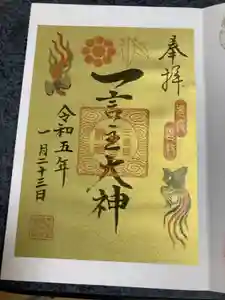 奉拝
一言主大神
令和五年
一月二十三日